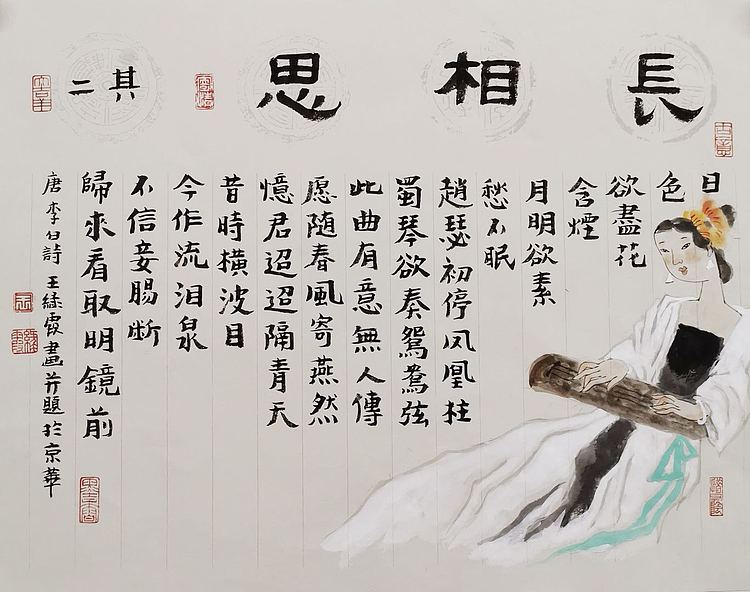 長相思
其二
日
色
欲盡花
含煙
月明欲素
愁不眠
趙瑟初停凤凰柱
蜀琴欲奏鴛鴦弦
此曲有意無人傳
愿随春風寄燕然
憶君迢迢隔青天
昔時横波目
今作流泪泉
不信妾腸断
歸來看取明鏡前
唐李白詩王霞畫并題於京華